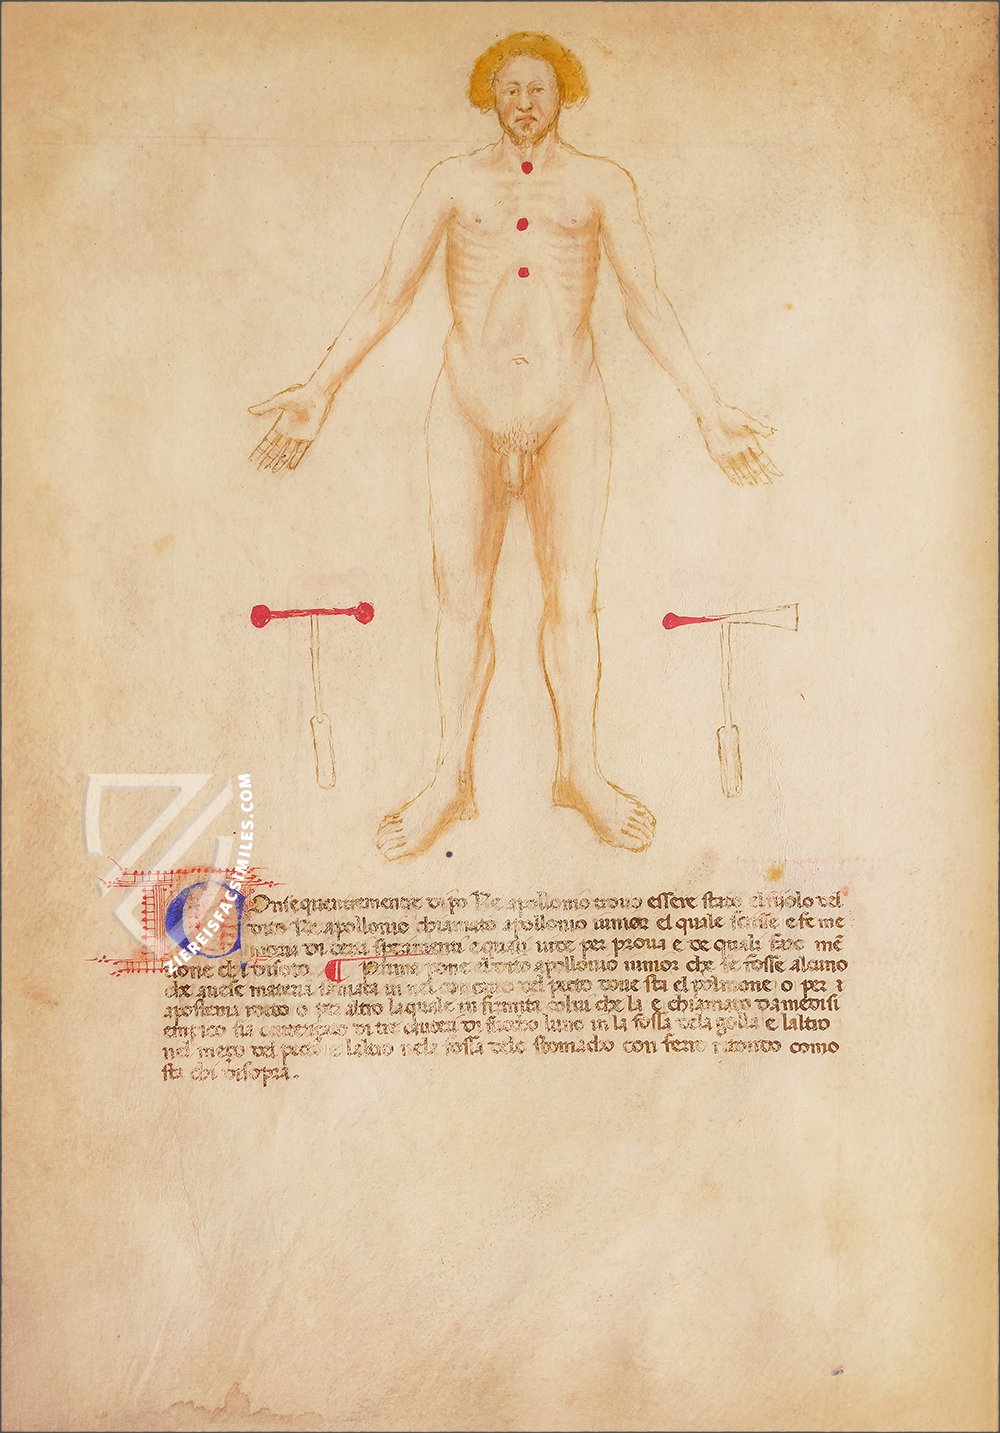 Onsequentemente dipo Re apollonio trovo essere stato el fijolo del
dito Re apollonio chiamato apollonio iunior el quale scrisse e fe me
moria di ceri stromenti e quali urde per prova e de quali faro mē
tione chi disoto. ¶ Prima pone el dito apollonio iunior che se fosse alcuno
che avese materia in nel concavo del pecto dove sta el polmone o per
apostema rocto o per altro la quale in firmita colui che la e chiamato da medisi
empico sia di tre di fuocho luno in la fossa dela golla e laltro
nel meço del pecto e laltro nela fossa delo stomacho con ferro ritondo como
sta chi disopra.
ZIEREISFACSIMILES.COM